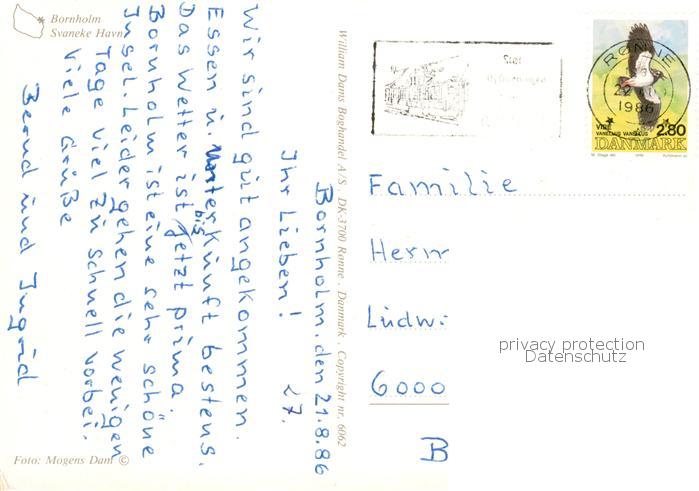 Bornholm
Svaneke Havn
Bornholm, den 21.8.86
Ihr Lieben!
Wir sind gut angekommen.
Essen u. Unterkunft bestens.
Das Wetter ist bis jetzt prima.
Bornholm ist eine sehr schöne
Insel. Leider gehen die wenigen
Tage viel zu schnell vorbei.
Viele Grüße
Bernd und Ingrid
Foto: Mogens Dam ©
William Dams Boghandel A/S . DK-3700 Rønne . Danmark . Copyright nr. 6062
RØNNE
1986
VIBE
VANELLUS VANELLUS
2.80
DANMARK
Familie
Herrn
Ludw.
6000
privacy protection
Datenschutz